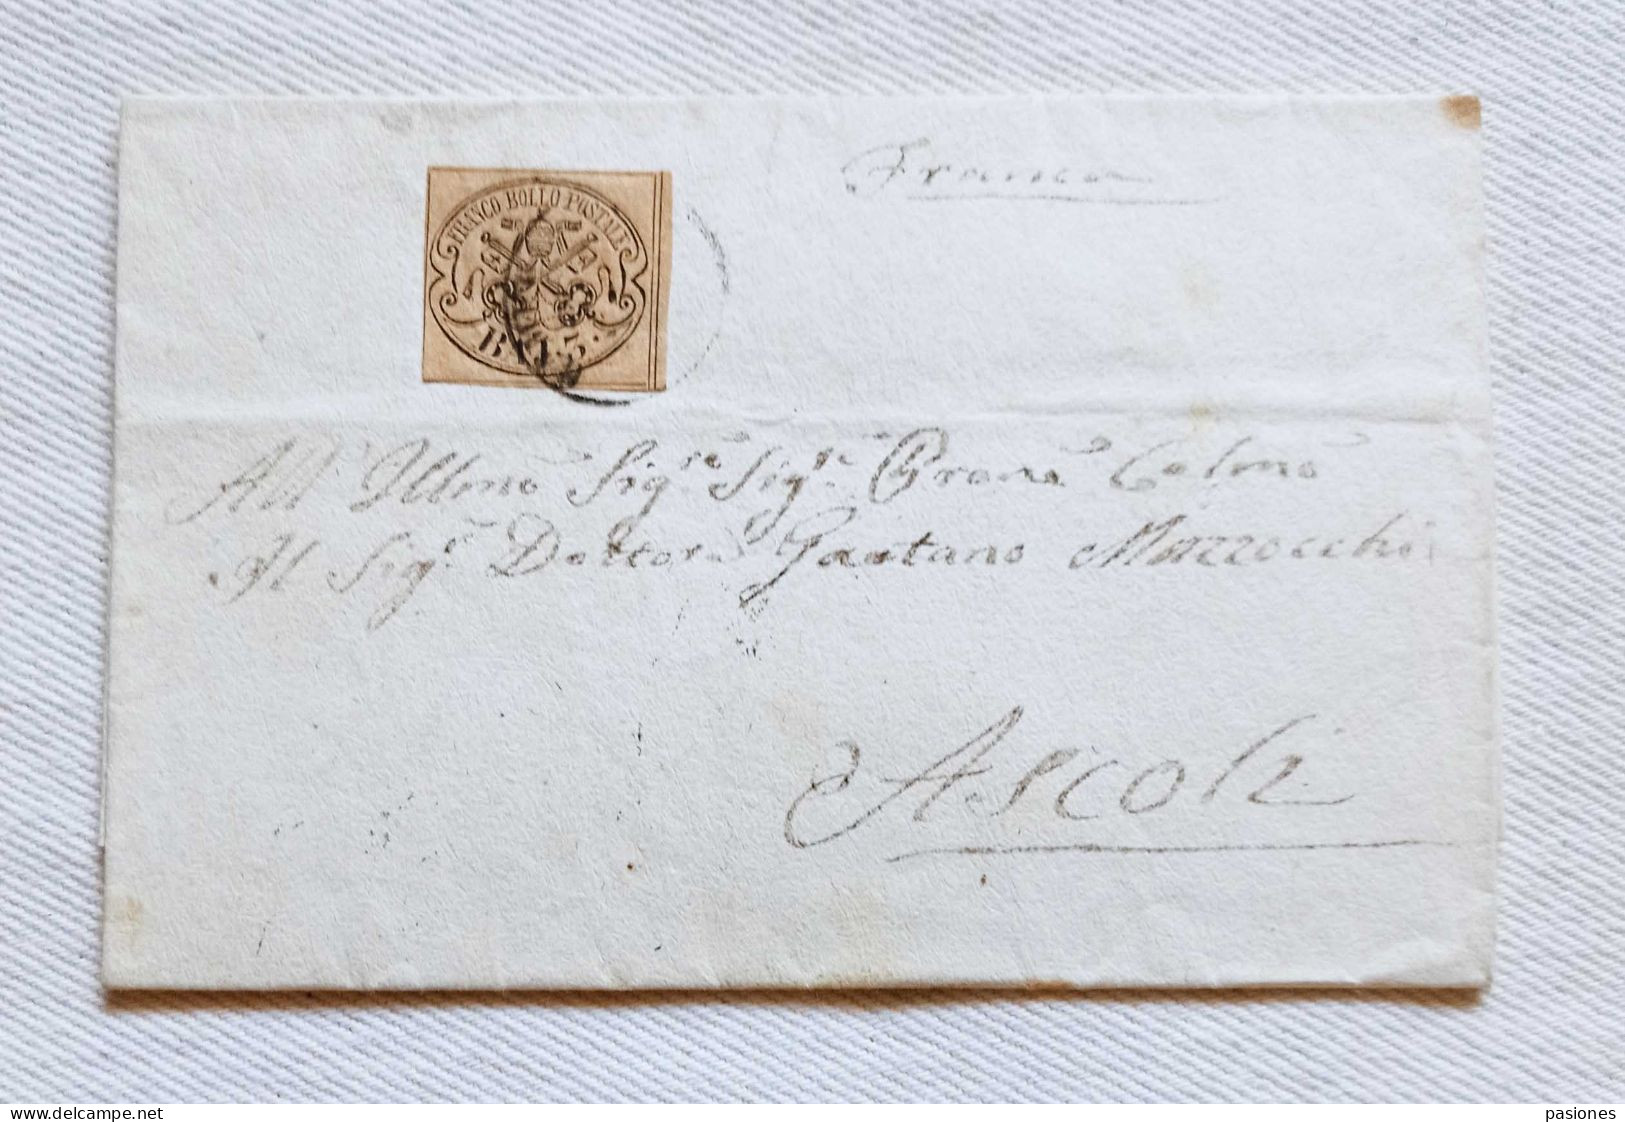 Franca
FRANCO BOLLO POSTALE
BAJ. 3.
All' Illmo Sigre Sigr Prone Colmo
Il Sigr Dottor Gaetano Mazzocchi
Ascoli
delcampe.net
pasiones